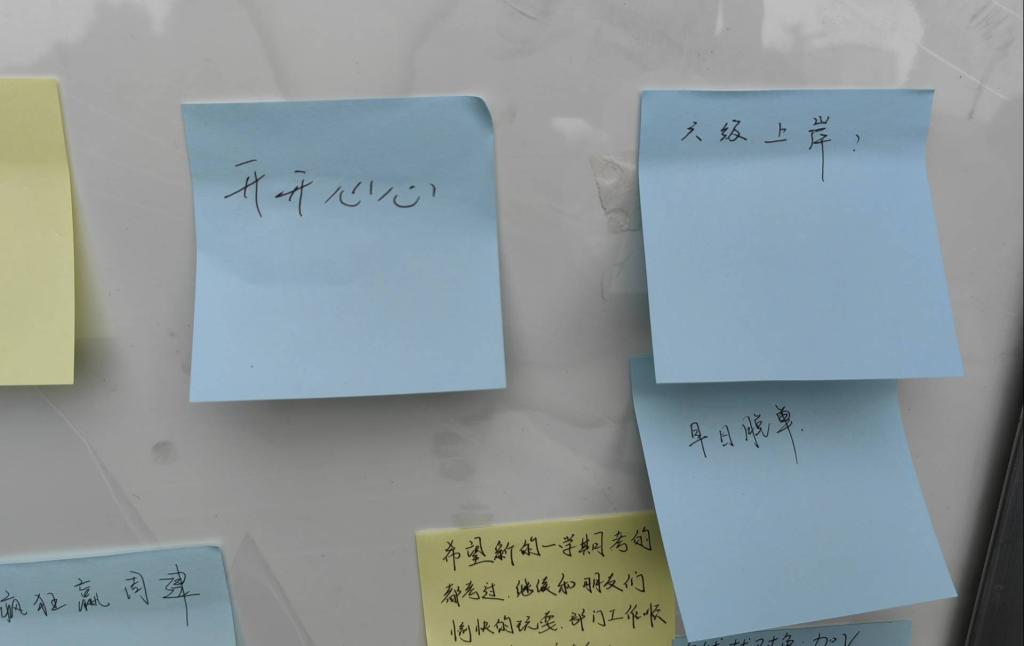 开开心心
六级上岸?
早日脱单.
疯狂赢周建
希望新的一学期考的
都考过.继续和朋友们
愉快的玩耍.部门工作顺